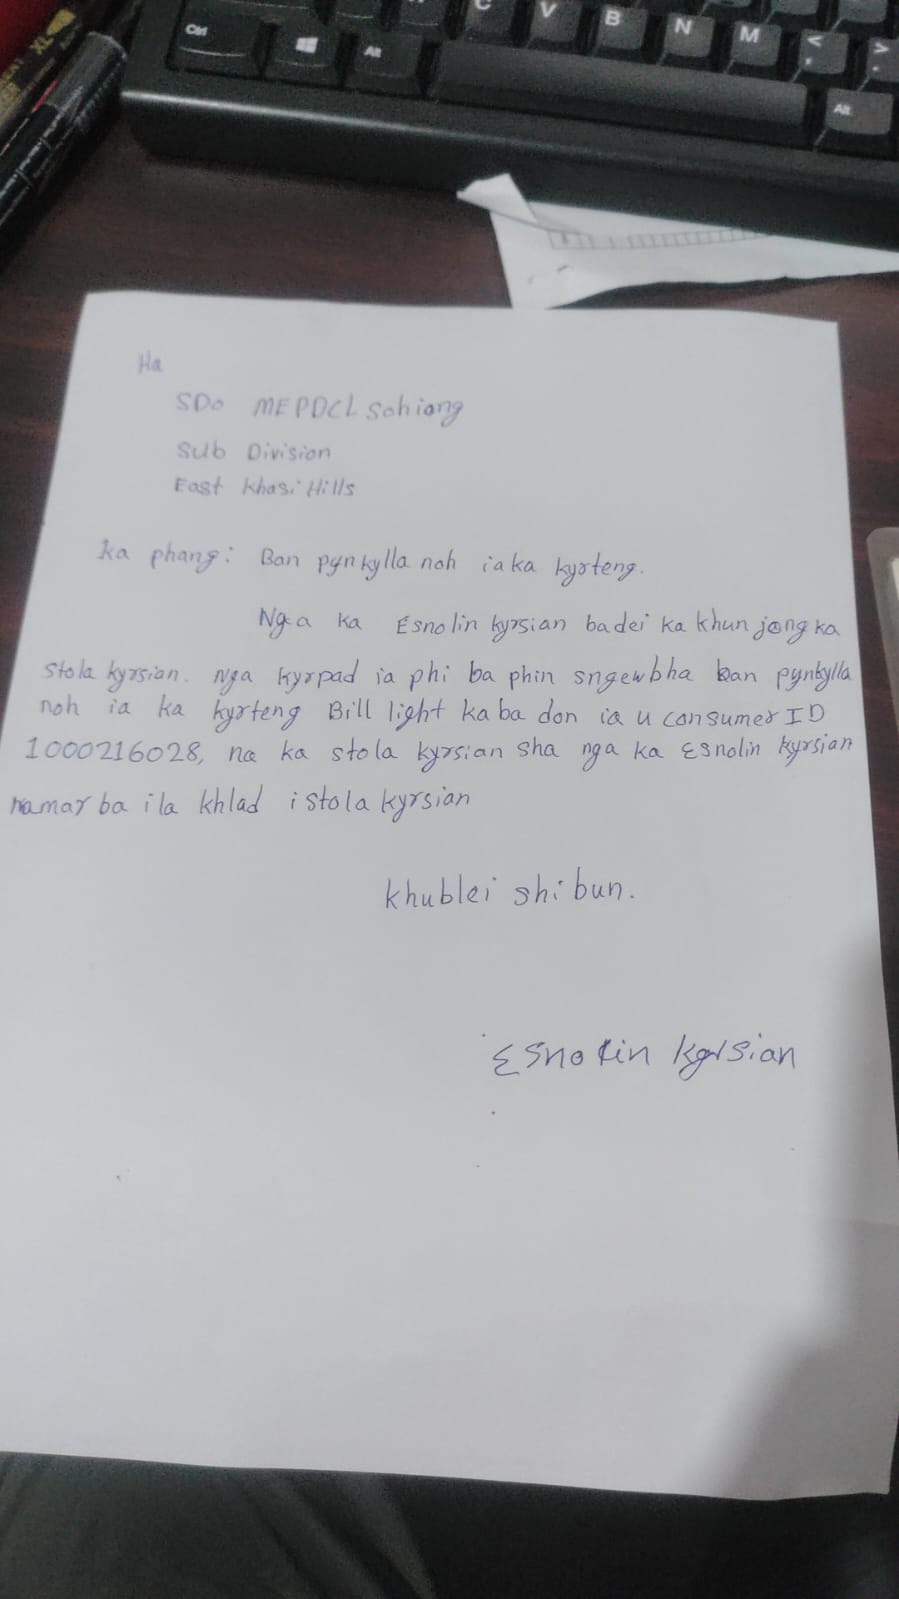 Ctrl
Alt
C
V
B
N
M
<
,
>
.
Alt
XL
Ha
SDo MEPDCL Sohiong
Sub Division
East Khasi Hills
ka phang: Ban pynkylla noh ia ka kyrteng.
Nga ka Esnolin kyrsian badei ka khun jong ka
Stola kyrsian. nga kyrpad ia phi ba phin sngewbha ban pynkylla
noh ia ka kyrteng Bill light kaba don ia u consumer ID
1000216028, na ka stola kyrsian sha nga ka Esnolin kyrsian
namar ba ila khlad i stola kyrsian
khublei shibun.
Esnolin kyrsian